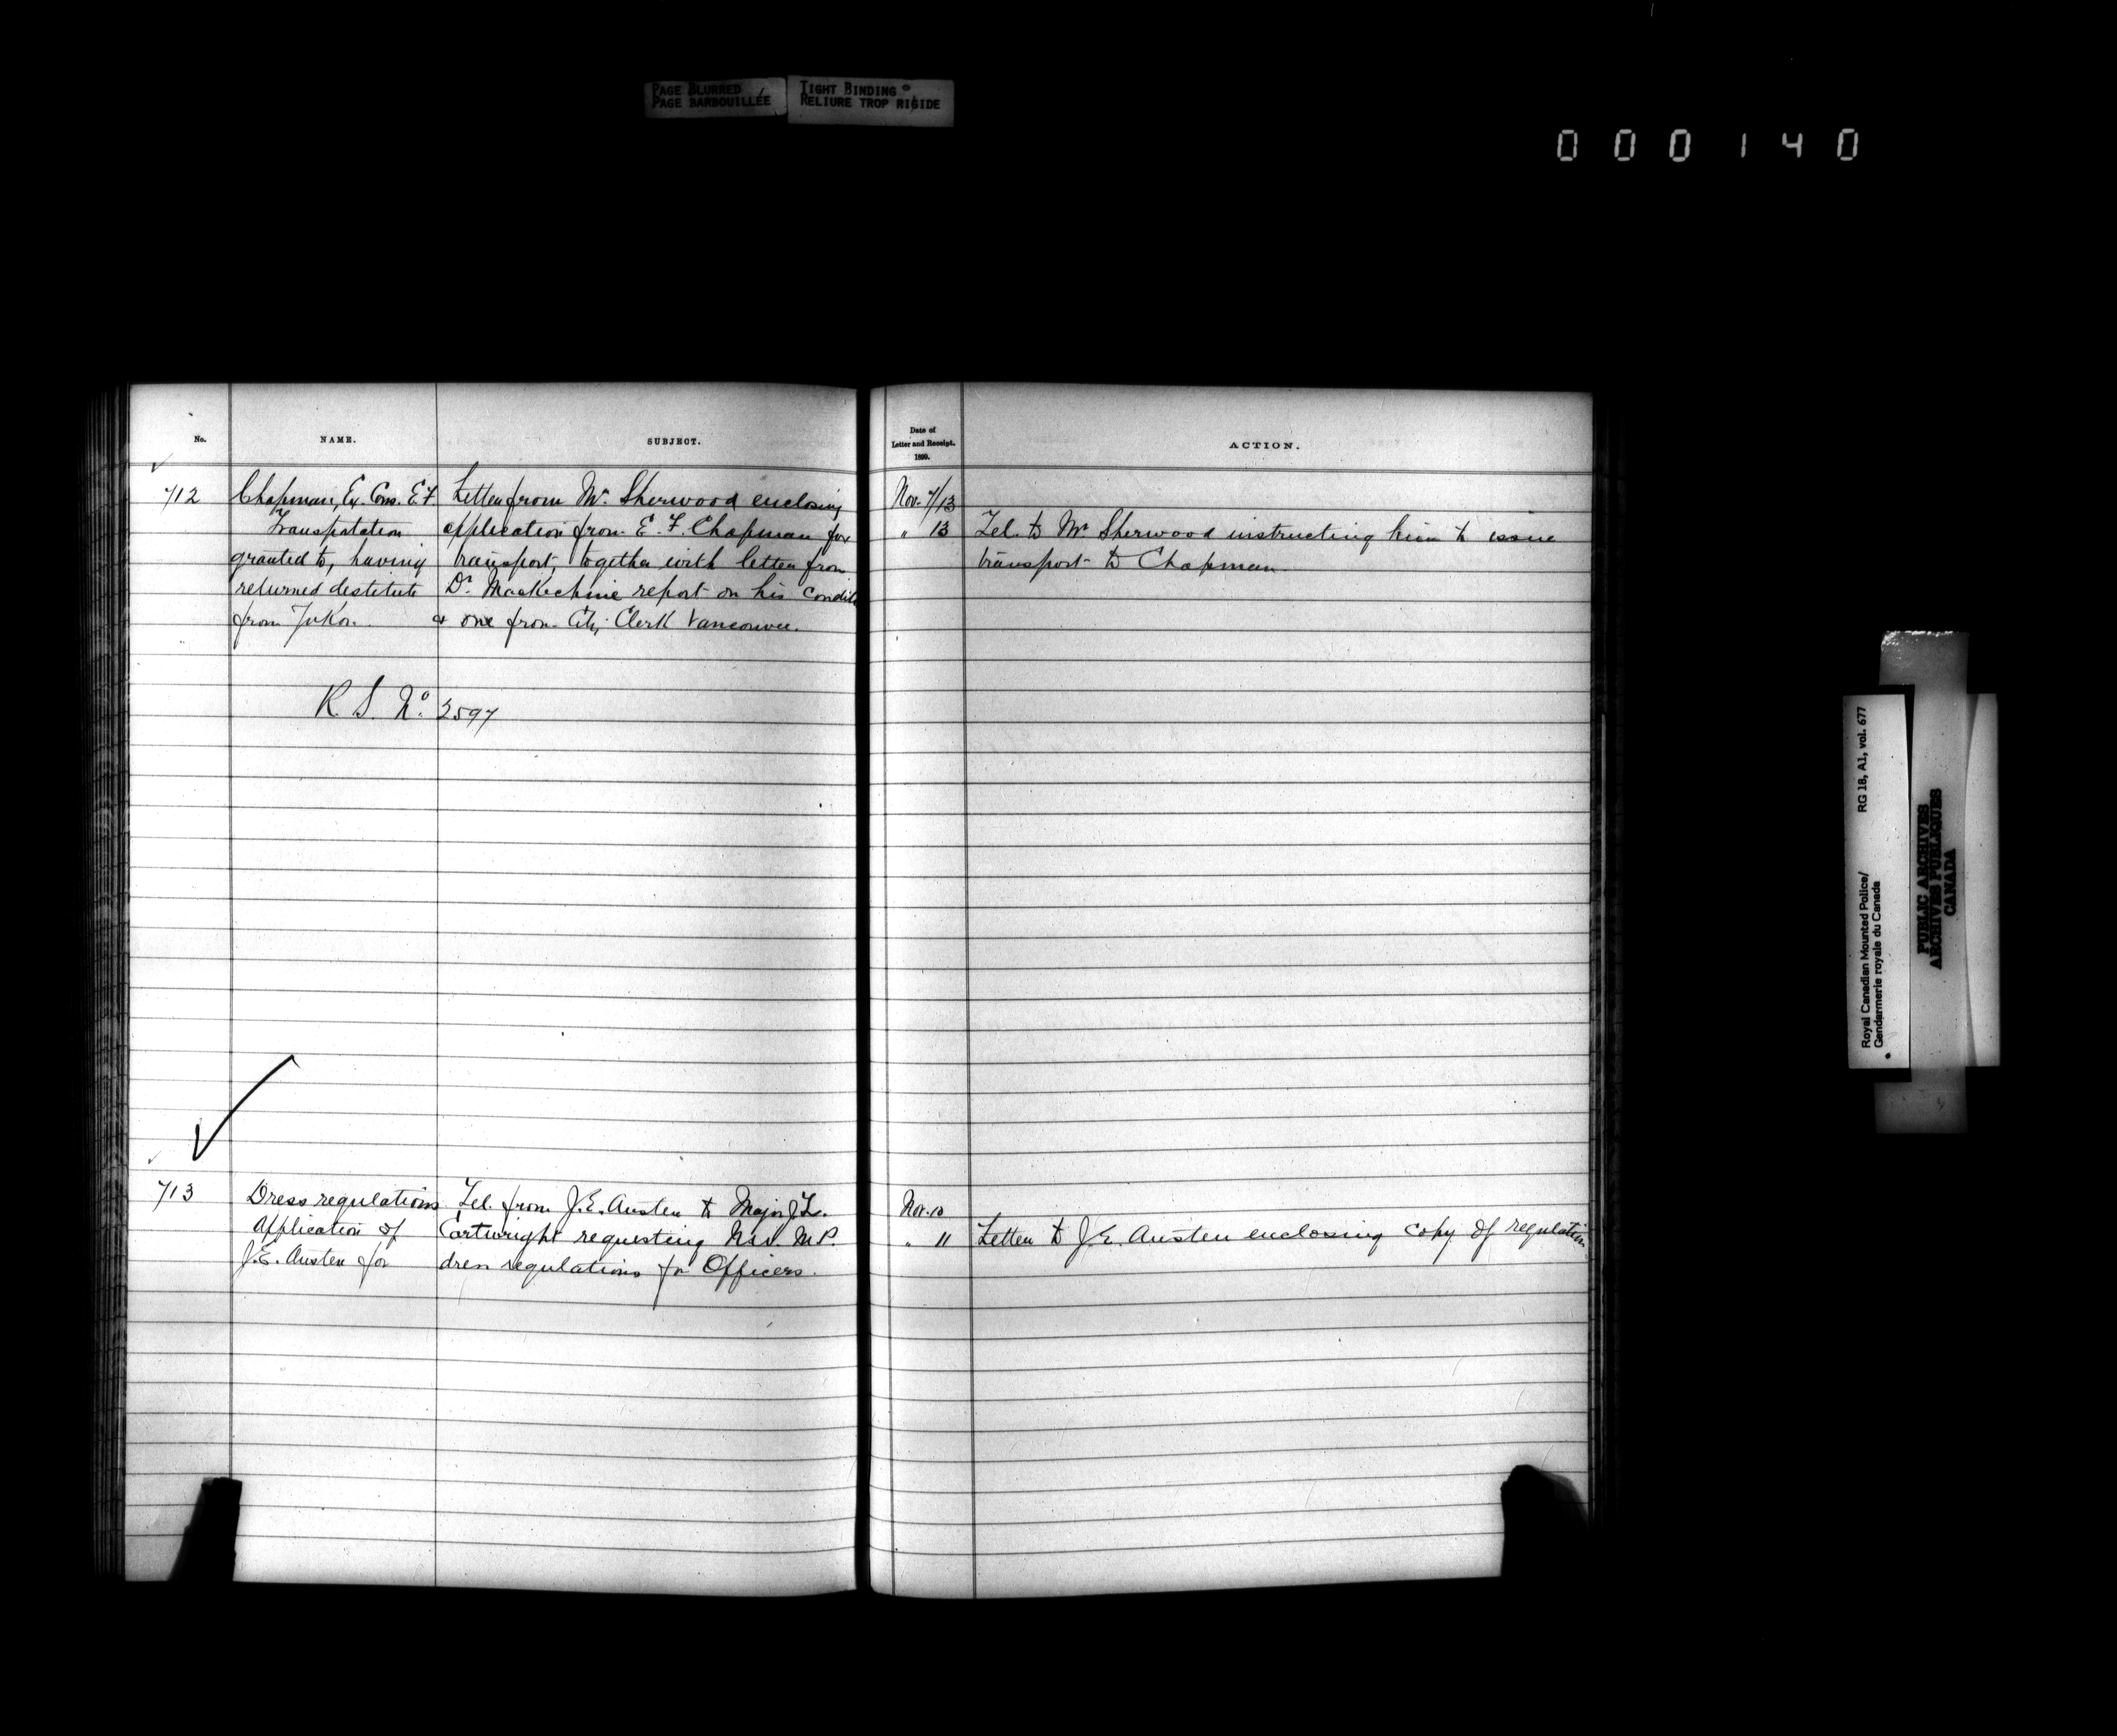 PAGE BLURRED
PAGE BARBOUILLÉE
TIGHT BINDING
RELIURE TROP RIGIDE
000140
No.
NAME.
SUBJECT.
Date of
Letter and Receipt.
1899.
ACTION.
712
Chapman, Ex Cons. E.F.
Transportation
granted to, having
returned destitute
from Yukon.
Letter from Mr. Sherwood enclosing
application from E. F. Chapman for
transport, together with letter from
Dr. MacKechnie report on his condit
& one from City Clerk Vancouver.
Nov. 7/13
" 13
Tel. to Mr Sherwood instructing him to issue
transport to Chapman
R. S. No. 2597
713
Dress regulations
Application of
J.E. Austen for
Tel. from J.E. Austen to Major
Cartwright requesting N.W. M.P.
dress regulations for Officers.
Nov. 10
" 11
Letter to J.E. Austen enclosing copy of regulation
Royal Canadian Mounted Police/
Gendarmerie royale du Canada
RG 18, A1, vol. 677
PUBLIC ARCHIVES
ARCHIVES PUBLIQUES
CANADA